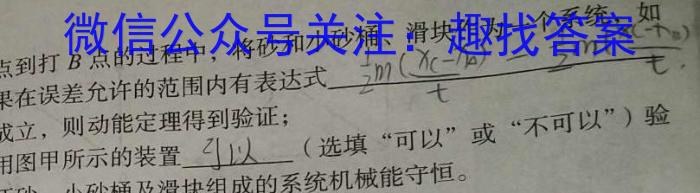 微信公众号关注：趣找答案
点到打B点的过程中，将砂和小砂桶、滑块作为一个系统，如
果在误差允许的范围内有表达式
成立，则动能定理得到验证；
用图甲所示的装置 可以 （选填“可以”或“不可以”）验
小砂桶及滑块组成的系统机械能守恒。